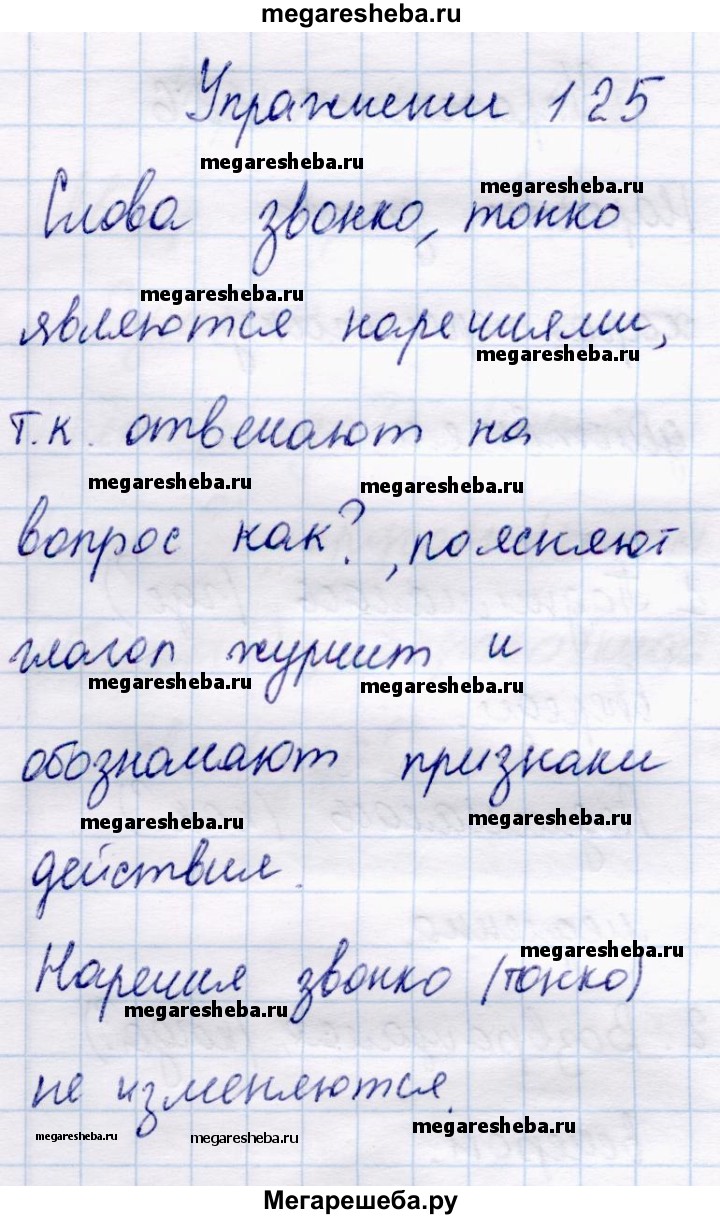 megaresheba.ru
Упражнении 125
megaresheba.ru
megaresheba.ru
Слова звонко, тонко
megaresheba.ru
являются наречиями,
megaresheba.ru
т.к. отвечают на
megaresheba.ru
megaresheba.ru
вопрос как?, поясняют
глагол журчит и
megaresheba.ru
megaresheba.ru
обозначают признаки
megaresheba.ru
megaresheba.ru
действия.
megaresheba.ru
Наречия звонко (тонко)
megaresheba.ru
не изменяются.
megaresheba.ru
megaresheba.ru
megaresheba.ru
Мегарешеба.ру